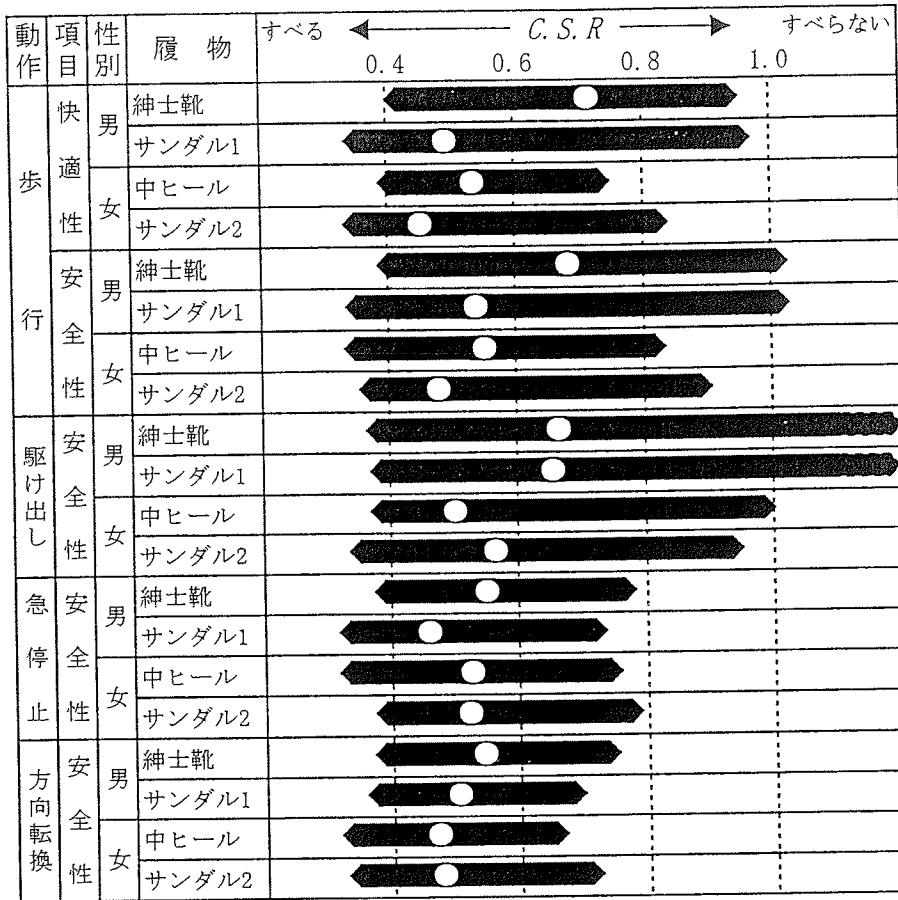 動作 項目 性別 履物 すべる C.S.R すべらない
0.4 0.6 0.8 1.0
歩行 快適性 男 紳士靴
サンダル1
女 中ヒール
サンダル2
安全性 男 紳士靴
サンダル1
女 中ヒール
サンダル2
駆け出し 安全性 男 紳士靴
サンダル1
女 中ヒール
サンダル2
急停止 安全性 男 紳士靴
サンダル1
女 中ヒール
サンダル2
方向転換 安全性 男 紳士靴
サンダル1
女 中ヒール
サンダル2